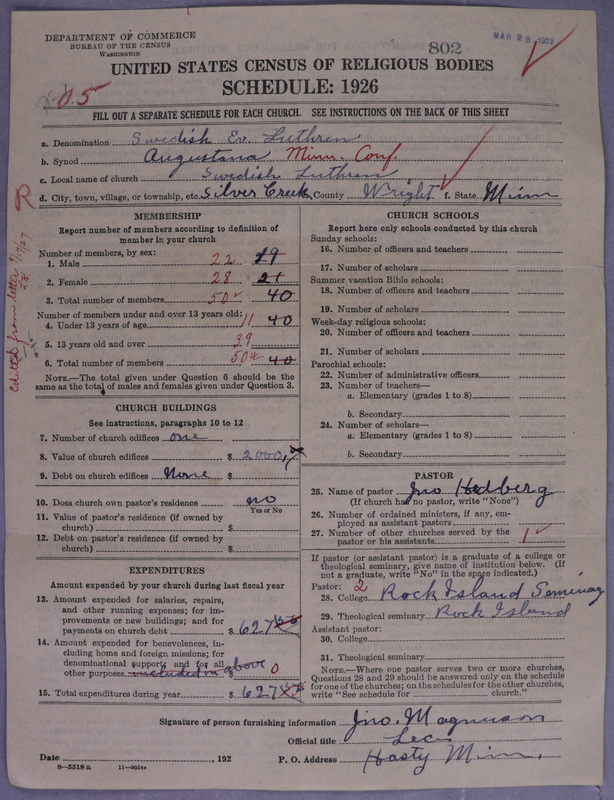 DEPARTMENT OF COMMERCE
BUREAU OF THE CENSUS
WASHINGTON
802
MAR 28 1927
UNITED STATES CENSUS OF RELIGIOUS BODIES
SCHEDULE: 1926
FILL OUT A SEPARATE SCHEDULE FOR EACH CHURCH. SEE INSTRUCTIONS ON THE BACK OF THIS SHEET
a. Denomination Swedish Ev. Luthren
b. Synod Augustana Minn. Conf.
c. Local name of church Swedish Luthren
d. City, town, village, or township, etc. Silver Creek County Wright f. State Minn
R
Edited from letter 9/17/27
MEMBERSHIP
Report number of members according to definition of member in your church
Number of members, by sex:
1. Male 22 19
2. Female 28 21
3. Total number of members 50 40
Number of members under and over 13 years old:
4. Under 13 years of age 11 40
5. 13 years old and over 39
6. Total number of members 50 40
NOTE.—The total given under Question 6 should be the same as the total of males and females given under Question 3.
CHURCH BUILDINGS
See instructions, paragraphs 10 to 12
7. Number of church edifices one
8. Value of church edifices $ 2000,00
9. Debt on church edifices None
10. Does church own pastor's residence no
Yes or No
11. Value of pastor's residence (if owned by church) $
12. Debt on pastor's residence (if owned by church) $
EXPENDITURES
Amount expended by your church during last fiscal year
13. Amount expended for salaries, repairs, and other running expenses; for improvements or new buildings; and for payments on church debt $ 627
14. Amount expended for benevolences, including home and foreign missions; for denominational support, and for all other purposes. included in above $ 0
15. Total expenditures during year $ 627
CHURCH SCHOOLS
Report here only schools conducted by this church
Sunday schools:
16. Number of officers and teachers
17. Number of scholars
Summer vacation Bible schools:
18. Number of officers and teachers
19. Number of scholars
Week-day religious schools:
20. Number of officers and teachers
21. Number of scholars
Parochial schools:
22. Number of administrative officers
23. Number of teachers—
a. Elementary (grades 1 to 8)
b. Secondary
24. Number of scholars—
a. Elementary (grades 1 to 8)
b. Secondary
PASTOR
25. Name of pastor Jno Hedberg
(If church has no pastor, write "None")
26. Number of ordained ministers, if any, employed as assistant pastors
27. Number of other churches served by the pastor or his assistants 1
If pastor (or assistant pastor) is a graduate of a college or theological seminary, give name of institution below. (If not a graduate, write "No" in the space indicated.)
Pastor: 2
28. College Rock Island Seminay
29. Theological seminary Rock Island
Assistant pastor:
30. College
31. Theological seminary
NOTE.—Where one pastor serves two or more churches, Questions 28 and 29 should be answered only on the schedule for one of the churches; on the schedules for the other churches, write "See schedule for church."
Signature of person furnishing information Jno. Magnuson
Official title Sec.
Date , 192 P. O. Address Hasty Minn,
8—5518a 11—9054